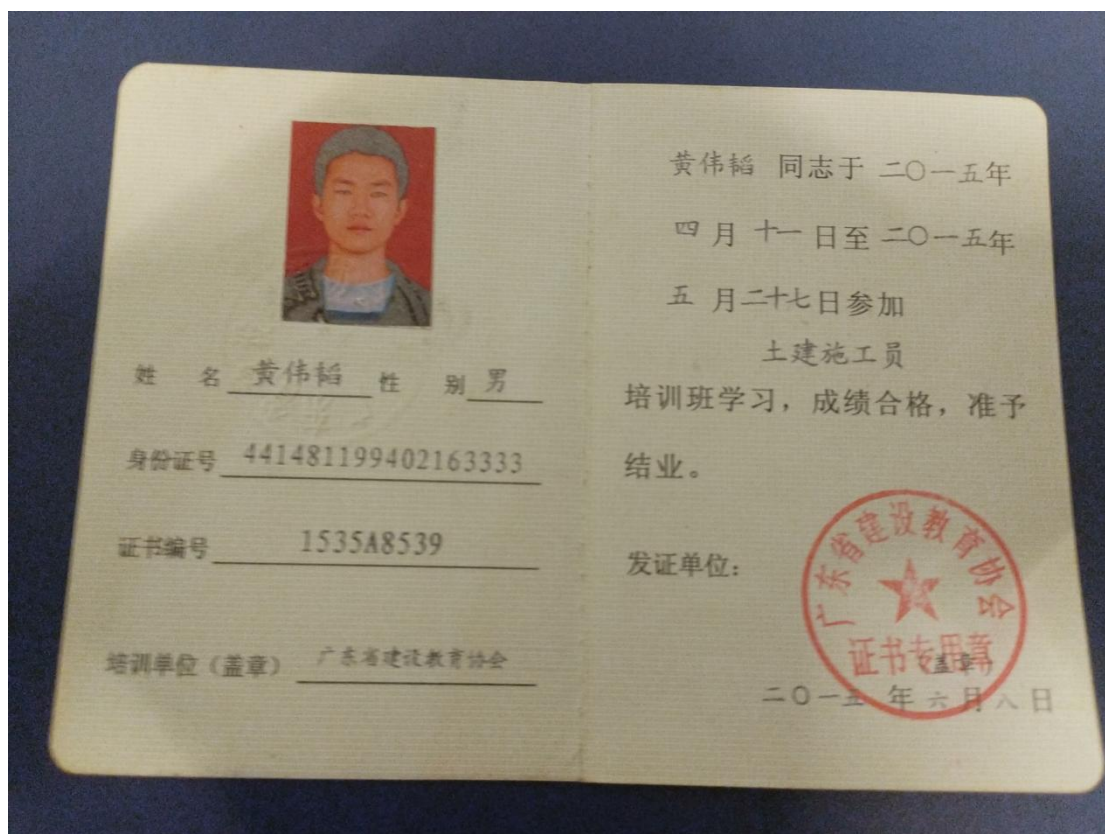 姓 名 黄伟韬 性 别 男
身份证号 441481199402163333
证书编号 1535A8539
培训单位（盖章） 广东省建设教育协会
黄伟韬 同志于 二〇一五年
四 月 十一 日至 二〇一五年
五 月二十七日参加
土建施工员
培训班学习，成绩合格，准予
结业。
发证单位：
广东省建设教育协会
证书专用章
（盖章）
二〇一五 年 六 月 八 日